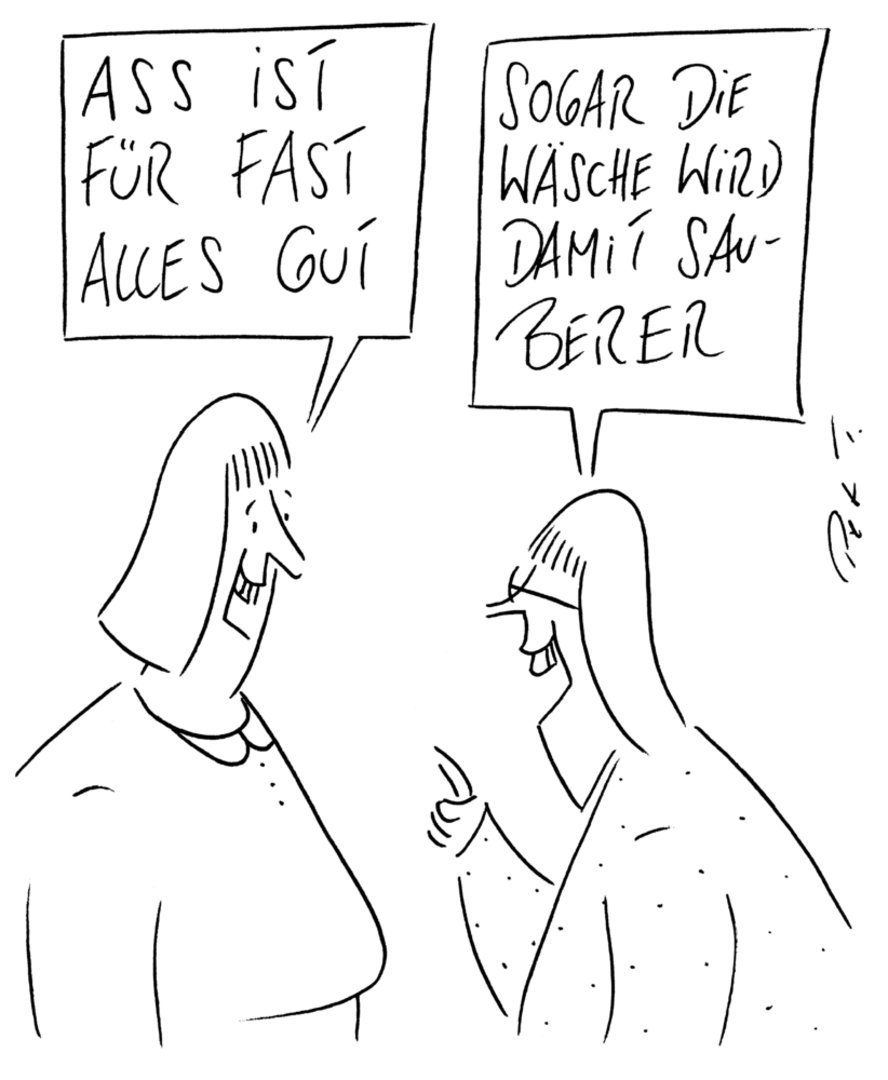 ASS iST
FÜR FAST
ALLES GUT
SOGAR DiE
WÄSCHE WiRD
DAMiT SAU-
BERER